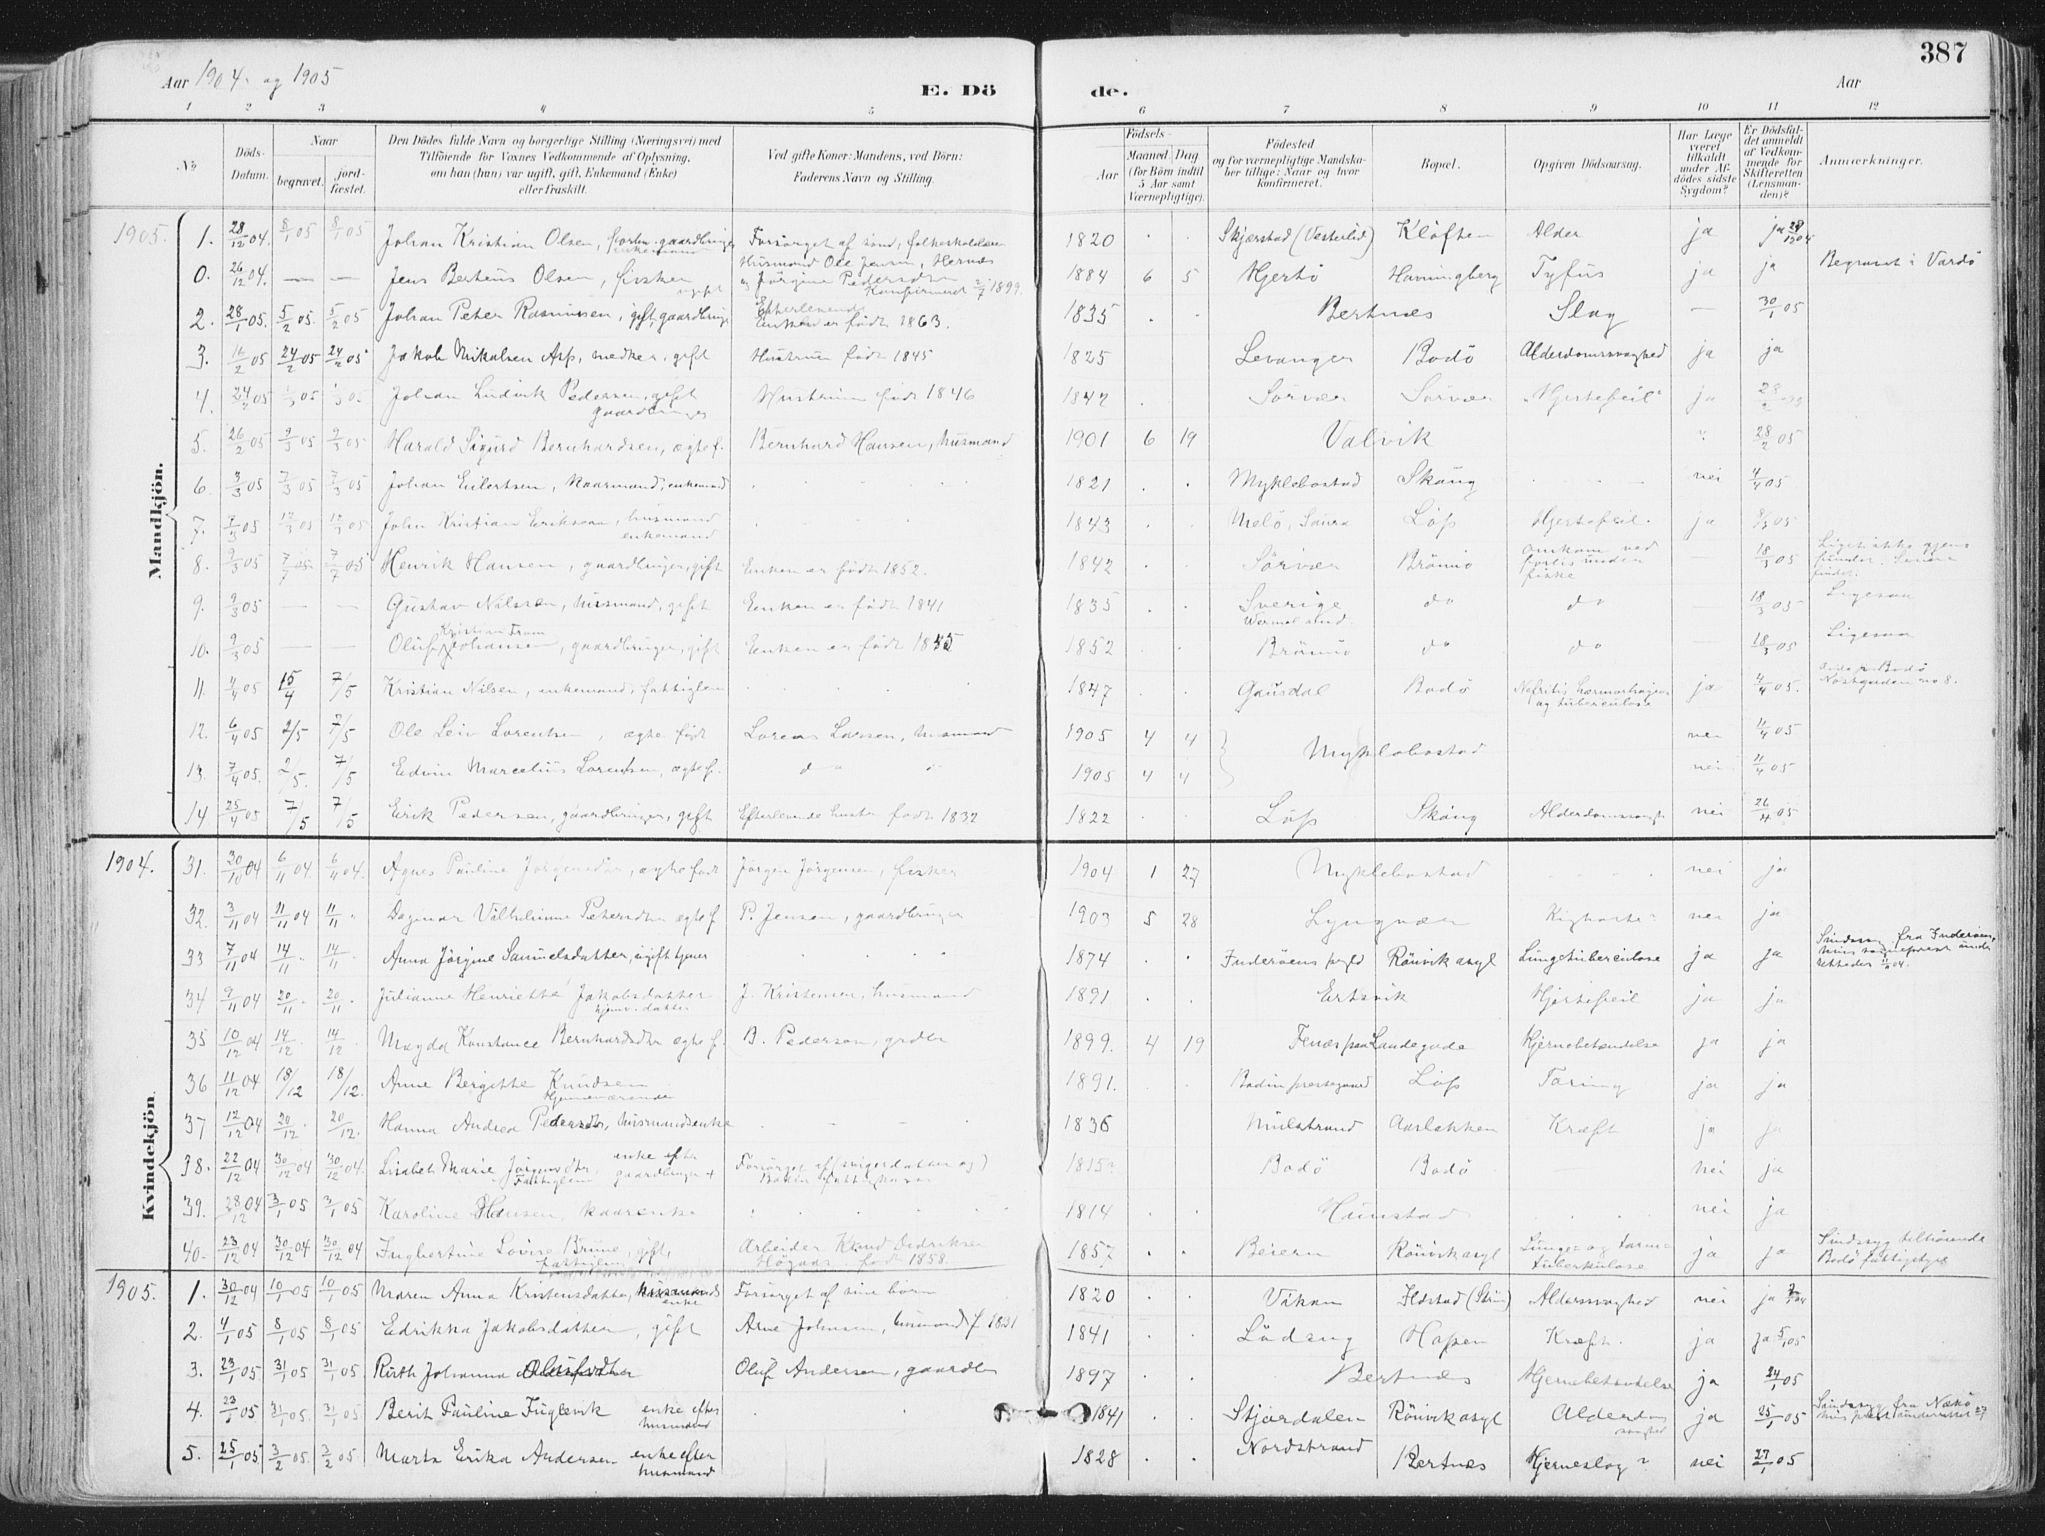 387
Aar 1904. og 1905
E. Dö de.
Aar
1 2 3 4 5 6 7 8 9 10 11 12
No
Döds-Datum.
Naar
begravet. jordfæstet.
Den Dödes fulde Navn og borgerlige Stilling (Næringsvei) med Tilföiende for Voxnes Vedkommende af Oplysning, om han (hun) var ugift, gift, Enkemand (Enke) eller fraskilt.
Ved gifte Koner: Mandens, ved Börn: Faderens Navn og Stilling.
Födsels-
Aar
Maaned Dag
(for Börn indtil 5 Aar samt Værnepligtige).
Födested
og for værnepligtige Mandskaber tillige: Naar og hvor konfirmeret.
Bopæl.
Opgiven Dödsaarsag.
Har Læge været tilkaldt under Afdödes sidste Sygdom?
Er Dödsfaldet anmeldt af Vedkommende for Skifteretten (Lensmanden)?
Anmærkninger.
Mandkjön.
1905. 1. 28/12 04. 8/1 05 8/1 05 Johan Kristian Olsen, gaardbruger enkemand Forsørget af sønd, 1820 Skjærstad (Vesterli) Kløften Alder ja ja
0. 26/12 04. — — Jens Berteus Olsen, fisker ugift Husmand Ole Jensen, Hernæs og Jørgine Pedersdtr Konfirmeret 2/7 1899. 1884 6 5 Hjertø Havningberg Tyfus ja ja Begravet i Vardø
2. 28/1 05. 5/2 05. 5/2 05 Johan Peter Rasmussen, gift, gaardbruger Efterlevende Enken er født 1863. 1835 Bertnæs Slag — 30/1 05
3. 16/2 05 24/2 05 24/2 05 Jakob Nikolsen Asp, snedker, gift Hustruen født 1845 1825 Levanger Bodø Alderdomssvaghed ja ja
4. 24/2 05 /3 05 /3 05 Johan Ludvik Pedersen, gift gaardbruger Hustruen født 1846 1842 Sørvær Sørvær "Hjertefeil" ja 28/2
5. 26/2 05 9/3 05 9/3 05 Harald Sigurd Bernhardsen, ægte f. Bernhard Hansen, husmand 1901 6 19 Valvik 28/2 05
6. 3/3 05 7/3 05 7/3 05 Johan Eilertsen, kaarmand, enkemand 1821 Myklebostad Skaug nei 4/4 05
7. 7/3 05 12/3 05 12/3 05 John Kristian Eriksen, husmand enkemand 1843 Melø, Saura Løp Hjertefeil. ja 8/3 05
8. 9/3 05 7/7 05 7/7 05 Henrik Hansen, gaardbruger, gift Enken er født 1852. 1842 Sørvær Bremnø omkom ved forlis under fiske — 18/3 05 Liget ikke gjenfundet. Senere fundet.
9. 9/3 05 — — Gustav Nilssen, husmand, gift Enken er født 1841 1835 Sverige Wermeland do do 18/3 05 Ligesaa
10. 9/3 05 — — Oluf Kristian Fram Johansen, gaardbruger, gift Enken er født 1855 1852 Bremnø do do 18/3 05 Ligesaa
11. 4/4 05 15/4 7/5 Kristian Nilsen, enkemand, fattiglem 1847 Gausdal Bodø Nefritis hæmorhagica og tuberculose ja 4/4 05.
12. 6/4 05 2/5 7/5 Ole Leiv Lorentsen, ægte født Lorens Larsen, husmand 1905 4 4 Myklebostad nei 11/4 05
13. 7/4 05. 2/5. 7/5 Edvin Marcelius Lorentsen, ægte f. do 1905 4 4 nei 11/4 05
14 25/4 05 7/5 7/5 Erik Pedersen, gaardbruger, gift Efterlevende hustru født 1832 1822 Løp Skaug Alderdomssvagh. nei 26/4 05
Kvindekjön.
1904. 31. 30/10 04 6/11 04 6/11 04. Agnes Pauline Jørgensdtr, ægte født Jørgen Jørgensen, fisker 1904 1 27 Myklebostad nei ja
32. 3/11 04 11/11 04 11/11 Dagmar Vilhelmine Petersdtr ægte f. P. Jensen, gaardbruger 1903 5 28 Lyngvær Kighoste nei ja
33 7/11 04 14/11 14/11 Anna Jørgine Samuelsdatter, ugift tjener 1874 Inderøens prgld Rønvik asyl Lungetuberculose ja ja Sindssyg fra Inderøen,
34 9/11 04 20/11 20/11 Julianne Henriette Jakobsdatter hjemv. datter J. Kristensen, husmand 1891 Ertsvik Hjertefeil ja ja
35 10/12 04 14/12 14/12 Magda Konstance Bernhardsdtr ægte f. B. Pedersen, grdbr 1899. 4 19 Fenæs paa Landegode Hjernebetændelse ja ja
36 11/12 04 18/12 18/12. Anne Bergitte Knudsen Hjemmeværende 1891. Bodin prestegaard Løp Tæring ja ja
37 12/12 04 20/12 20/12. Hanna Andrea Pedersdtr, husmandsenke 1836 Mulstrand Aarbakken Kræft ja ja
38. 22/12 04 30/12 04 30/12 04. Lisabet Marie Jørgensdtr, enke efter gaardbruger Fattiglem Forsørget af svigerdatter og Bodin fattigkasse 1815 Bodø Bodø nei ja
39. 28/12 04 3/1 05 3/1 05 Karoline Hansen, kaarenke 1814 Haunstad nei ja
40. 23/12 04 30/12 04 30/12 04 Ingbertine Lovise Brune, gift, fattiglem Arbeider Knud Didriksen Høgaas, født 1858. 1857 Beiern Rønvik asyl Lunge- og tarmtuberkulose ja ja Sindssyg tilhørende Bodø fattigstyre
1905. 1. 30/12 04 10/1 05 10/1 05 Maren Anna Kristensdatter, husmands enke Forsørget af sine børn 1820 Vikan Ilstad (Skin) Alderssvaghed nei ja
2. 4/1 05 8/1 05 8/1 05 Edrikka Jakobsdatter, gift Arne Johnsen, husmand f. 1831 1841 Lødeng Hopen Kræft. ja ja 5/1 05
3. 23/1 05 31/1 05 31/1 05 Ruth Johanna Olufsdtr Oluf Andersen, gaardbr 1897 Bertnæs Hjernebetændelse ja 24/1 05
4. 23/1 05 31/1 05 31/1 05 Berit Pauline Fuglevik enke efter husmand 1841 Stjørdalen Rønvik asyl Alderdomssvaghed ja 25/1 05 Sindssyg fra
5. 25/1 05 3/2 05 3/2 05 Marta Erika Andersen enke efter husmand 1828 Nordstrand Bertnæs Hjerneslag? nei 27/1 05